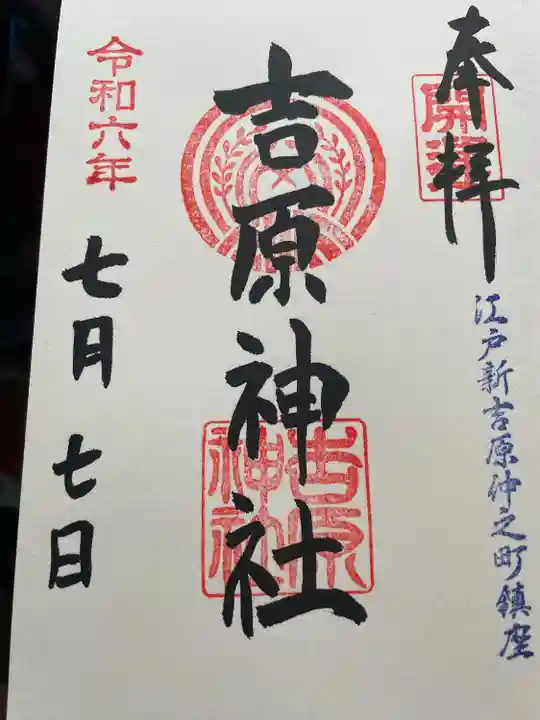 奉拝
開運
江戸新吉原仲之町鎮座
吉原神社
吉原
神社
令和六年
七月七日